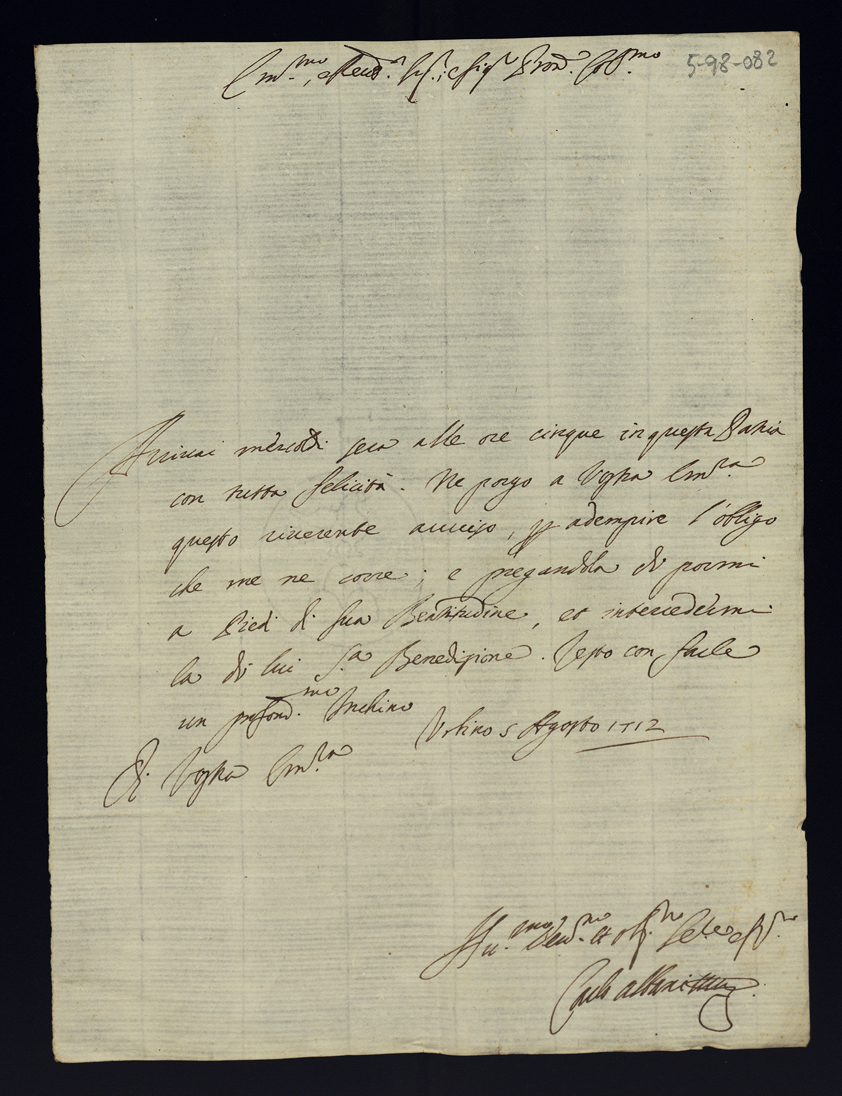 Em.mo, e Reud.o Sig.r, e Sig.r Pron.e Col.mo
5-98-082
Arriuai mercordì sera alle ore cinque in questa Patria
con tutta felicità. Ne porgo a Vostra Em.za
questo riuerente auuiso, p adempire l'obligo
che me ne corre; e pregandola di pormi
a Piedi di Sua Beatitudine, et intercedermi
la di lui S.a Benedizione. Resto con farle
un profond.mo Inchino
Urbino 5 Agosto 1712
Di Vostra Em.za
Hu.mo Deu.mo et Obl.mo
Carlo Albani